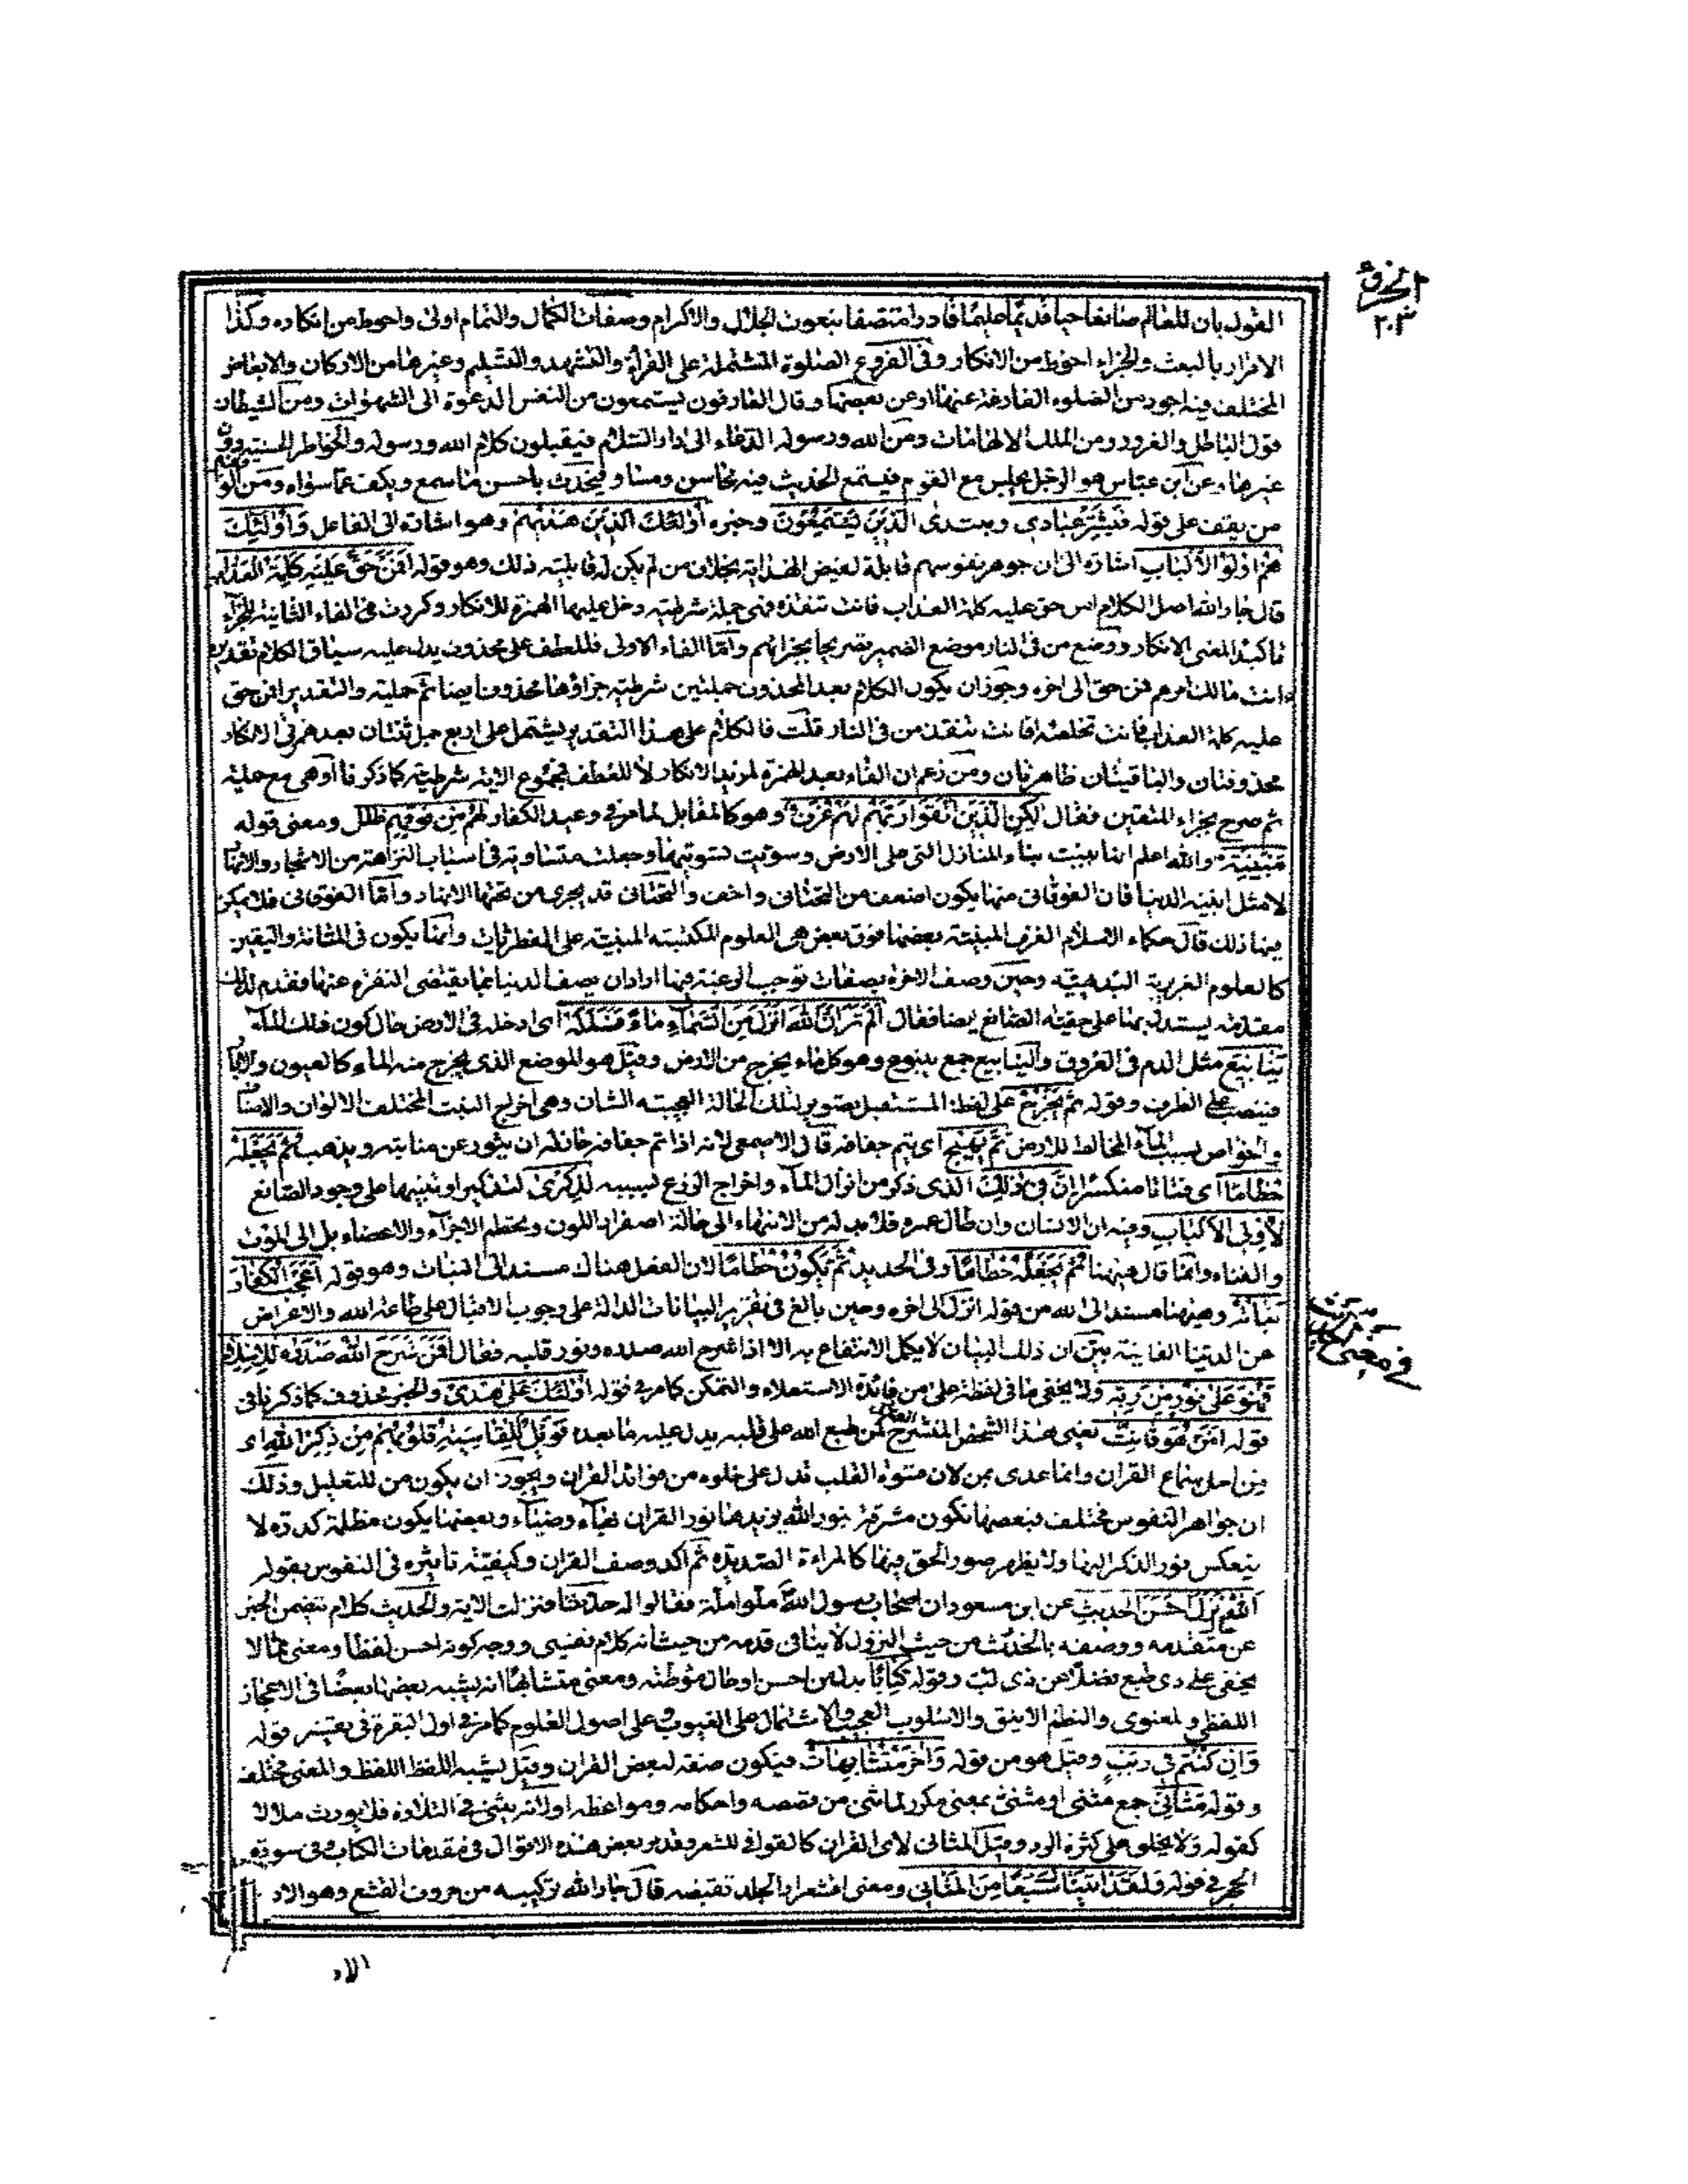 القول بان للعالم صانعا حيا قديما عليما قادرا متصفا بنعوت الجلال والاكرام وصفات الكمال والتمام اولى واحوط من انكاره وكذا
الاقرار بالبعث والجزاء احوط من الانكار وفى الفروع الصلوة المشتملة على القرأة والتشهد والتسليم وغيرها من الاركان والابعاض
المختلف فيه اجود من الصلوه الفارغة عنها او عن بعضها وقال العارفون يستمعون من النفس الدعوة الى الشهوات ومن الشيطان
قول الباطل والغرور ومن الملك الالهامات ومن الله ورسوله الدعاء الى دار السلام فيقبلون كلام الله ورسوله والخواطر الحسنة دون
غيرها وعن ابن عباس هو الرجل يجلس مع القوم فيستمع الحديث فيه محاسن ومساو فيحدث باحسن ما سمع ويكف عما سواه ومن
من يقف على قوله فبشر عبادى ويبتدئ الذين يستمعون وخبره اولئك الذين هديهم وهو اشارة الى الفاعل واولئك
هم اولوا الالباب اشارة الى ان جوهر نفوسهم قابلة لفيض الهداية بخلاف من لم يكن له قابلية ذلك وهو قوله افمن حق عليه كلمة العذاب
قال جار الله اصل الكلام امن حق عليه كلمة العذاب فانت تنقذه فهى جملة شرطية دخل عليها الهمزة للانكار وكررت فى الفاء الثانية للجزاء
تاكيدا لمعنى الانكار ووضع من فى النار موضع الضمير تصريحا بجزائهم واما الفاء الاولى فللعطف على محذوف يدل عليه سياق الكلام تقديره
ءانت مالك امرهم فمن حق الى اخره وجوز ان يكون الكلام بعد المحذوف جملتين شرطية جزاؤها محذوف ايضا ثم حملية والتقدير افمن حق
عليه كلمة العذاب فانت تخلصه افانت تنقذ من فى النار قلت فالكلام على هذا التقدير يشتمل على اربع جمل ثنتان بعد همزتى الانكار
محذوفتان والباقيتان ظاهرتان ومن زعم ان الفاء بعد الهمزة لمزيد الانكار لا للعطف فمجموع الاية شرطية كما ذكرنا او هى مع حملية
ثم صرح بجزاء المتقين فقال لكن الذين اتقوا ربهم لهم غرف وهو كالمقابل لما مر فى وعيد الكفار لهم من فوقهم ظلل ومعنى قوله
مبنية والله اعلم انها بنيت بناء المنازل التى على الارض وسويت تسويتها وجعلت متساوية فى اسباب النزاهة من الاشجار والانهار
لا مثل ابنية الدنيا فان الفوقانى منها يكون اضعف من التحتانى واخف والتحتانى قد يجرى من تحتها الانهار واما الفوقانى فلا يمكن
فيها ذلك قال حكماء الاسلام الغرف المبنية بعضها فوق بعض هى العلوم المكتسبة المبنية على الفطريات وانها يكون فى المتانة واليقين
كالعلوم الغريزية البديهية وحين وصف الاخرة بصفات توجب الرغبة فيها اراد ان يصف الدنيا بما يقتضى النفرة عنها فقدم لذلك
مقدمة يستدل بها على حقية الصانع ايضا فقال الم تر ان الله انزل من السماء ماء فسلكه اى ادخله فى الارض حال كون ذلك الماء
ينابيع مثل الدم فى العروق والينابيع جمع ينبوع وهو كل ماء يخرج من الارض وقيل هو الموضع الذى يخرج منه الماء كالعيون والابار
فينصب على الظرف وقوله ثم يخرج على لفظ المستقبل تصوير لتلك الحالة العجيبة الشان وهى اخراج النبت المختلف الالوان والاصناف
والخواص بسبب الماء المخالط للارض ثم يهيج اى يتم جفافه قال الاصمعى لانه اذا تم جفافه حان له ان يثور عن منابته ويذهب ثم يجعله
حطاما اى فتاتا منكسرا ان فى ذلك الذى ذكر من انزال الماء واخراج الزرع بسببه لذكرى لتذكيرا وتنبيها على وجود الصانع
لاولى الالباب وفيه ان الانسان وان طال عمره فلا بد له من الانتهاء الى حالة اصفرار اللون وتحطم الاجزاء والاعضاء بل الى الموت
والفناء وانما قال ههنا ثم يجعله حطاما وفى الحديد ثم يكون حطاما لان الفعل هناك مسند الى النبات وهو قوله اعجب الكفار
نباته وههنا مسند الى الله من قوله انزل الى اخره وحين بالغ فى تقرير البيانات الدالة على وجوب الاقبال على طاعة الله والاعراض
عن الدنيا الفانية بين ان ذلك البيان لا يكمل الانتفاع به الا اذا شرح الله صدره ونور قلبه فقال افمن شرح الله صدره للاسلام
فهو على نور من ربه ولا يخفى ما فى لفظة على من فائدة الاستعلاء والتمكن كما مر فى قوله اولئك على هدى والخبر محذوف كما ذكرنا فى
قوله امن هو قانت يعنى هذا الشخص المنشرح الصدر كمن طبع الله على قلبه يدل عليه ما بعده فويل للقاسية قلوبهم من ذكر الله اى
من اجل سماع القران وانما عدى بمن لان قسوة القلب تدل على خلوه من فوائد القران ويجوز ان يكون من للتعليل وذلك
ان جواهر النفوس مختلف فبعضها تكون مشرقة بنور الله يزيدها نور القران بهاء وضياء وبعضها يكون مظلمة كدرة لا
ينعكس نور الذكر اليها ولا يظهر صور الحق فيها كالمراءة الصدية ثم اكد وصف القران وكيفية تاثيره فى النفوس بقوله
الله نزل احسن الحديث عن ابن مسعود ان اصحاب رسول الله ملوا ملة فقالوا له حدثنا فنزلت الاية والحديث كلام يتضمن الخبر
عن متقدمه ووصفه بالحديث من حيث النزول لا ينافى قدمه من حيث انه كلام نفسى ووجه كونه احسن لفظا ومعنى مما لا
يخفى على ذى طبع فضلا عن ذى لب وقوله كتابا بدل من احسن او حال موطئة ومعنى متشابها انه يشبه بعضها بعضا فى الاعجاز
اللفظى والمعنوى والنظم الانيق والاسلوب العجيب والاشتمال على الغيوب وعلى اصول العلوم كما مر فى اول البقرة فى تفسير قوله
وان كنتم فى ريب وقيل هو من قوله واخر متشابهات فيكون صفة لبعض القران وقيل يشبه اللفظ اللفظ والمعنى مختلف
وقوله مثانى جمع مثنى او مثنى بمعنى مكرر لما ثنى من قصصه واحكامه ومواعظه او لانه يثنى فى التلاوة فلا يورث ملالا
كقوله ولا يخلق على كثرة الرد وقيل المثانى لاى القران كالقوافى للشعر وقد مر بعض هذه الاقوال فى مقدمات الكتاب وفى سورة
الحجر فى قوله ولقد اتيناك سبعا من المثانى ومعنى اقشعرار الجلد تقبضه قال جار الله تركيبه من حروف القشع وهو الاد